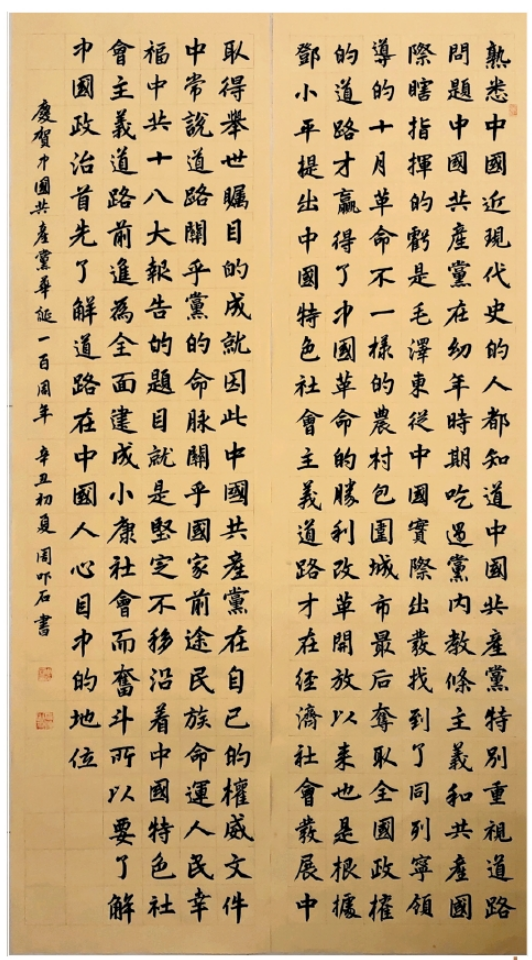 熟悉中國近現代史的人都知道中國共產黨特別重視道路
問題中國共產黨在幼年時期吃過黨內教條主義和共產國
際瞎指揮的虧是毛澤東從中國實際出發找到了同列寧領
導的十月革命不一樣的農村包圍城市最后奪取全國政權
的道路才贏得了中國革命的勝利改革開放以来也是根據
鄧小平提出中國特色社會主義道路才在經濟社會發展中
取得舉世矚目的成就因此中國共產黨在自己的權威文件
中常說道路關乎黨的命脉關乎國家前途民族命運人民幸
福中共十八大報告的題目就是堅定不移沿着中國特色社
會主義道路前進為全面建成小康社會而奮斗所以要了解
中國政治首先了解道路在中國人心目中的地位
慶賀中國共產黨華誕一百周年 辛丑初夏 周叩石書